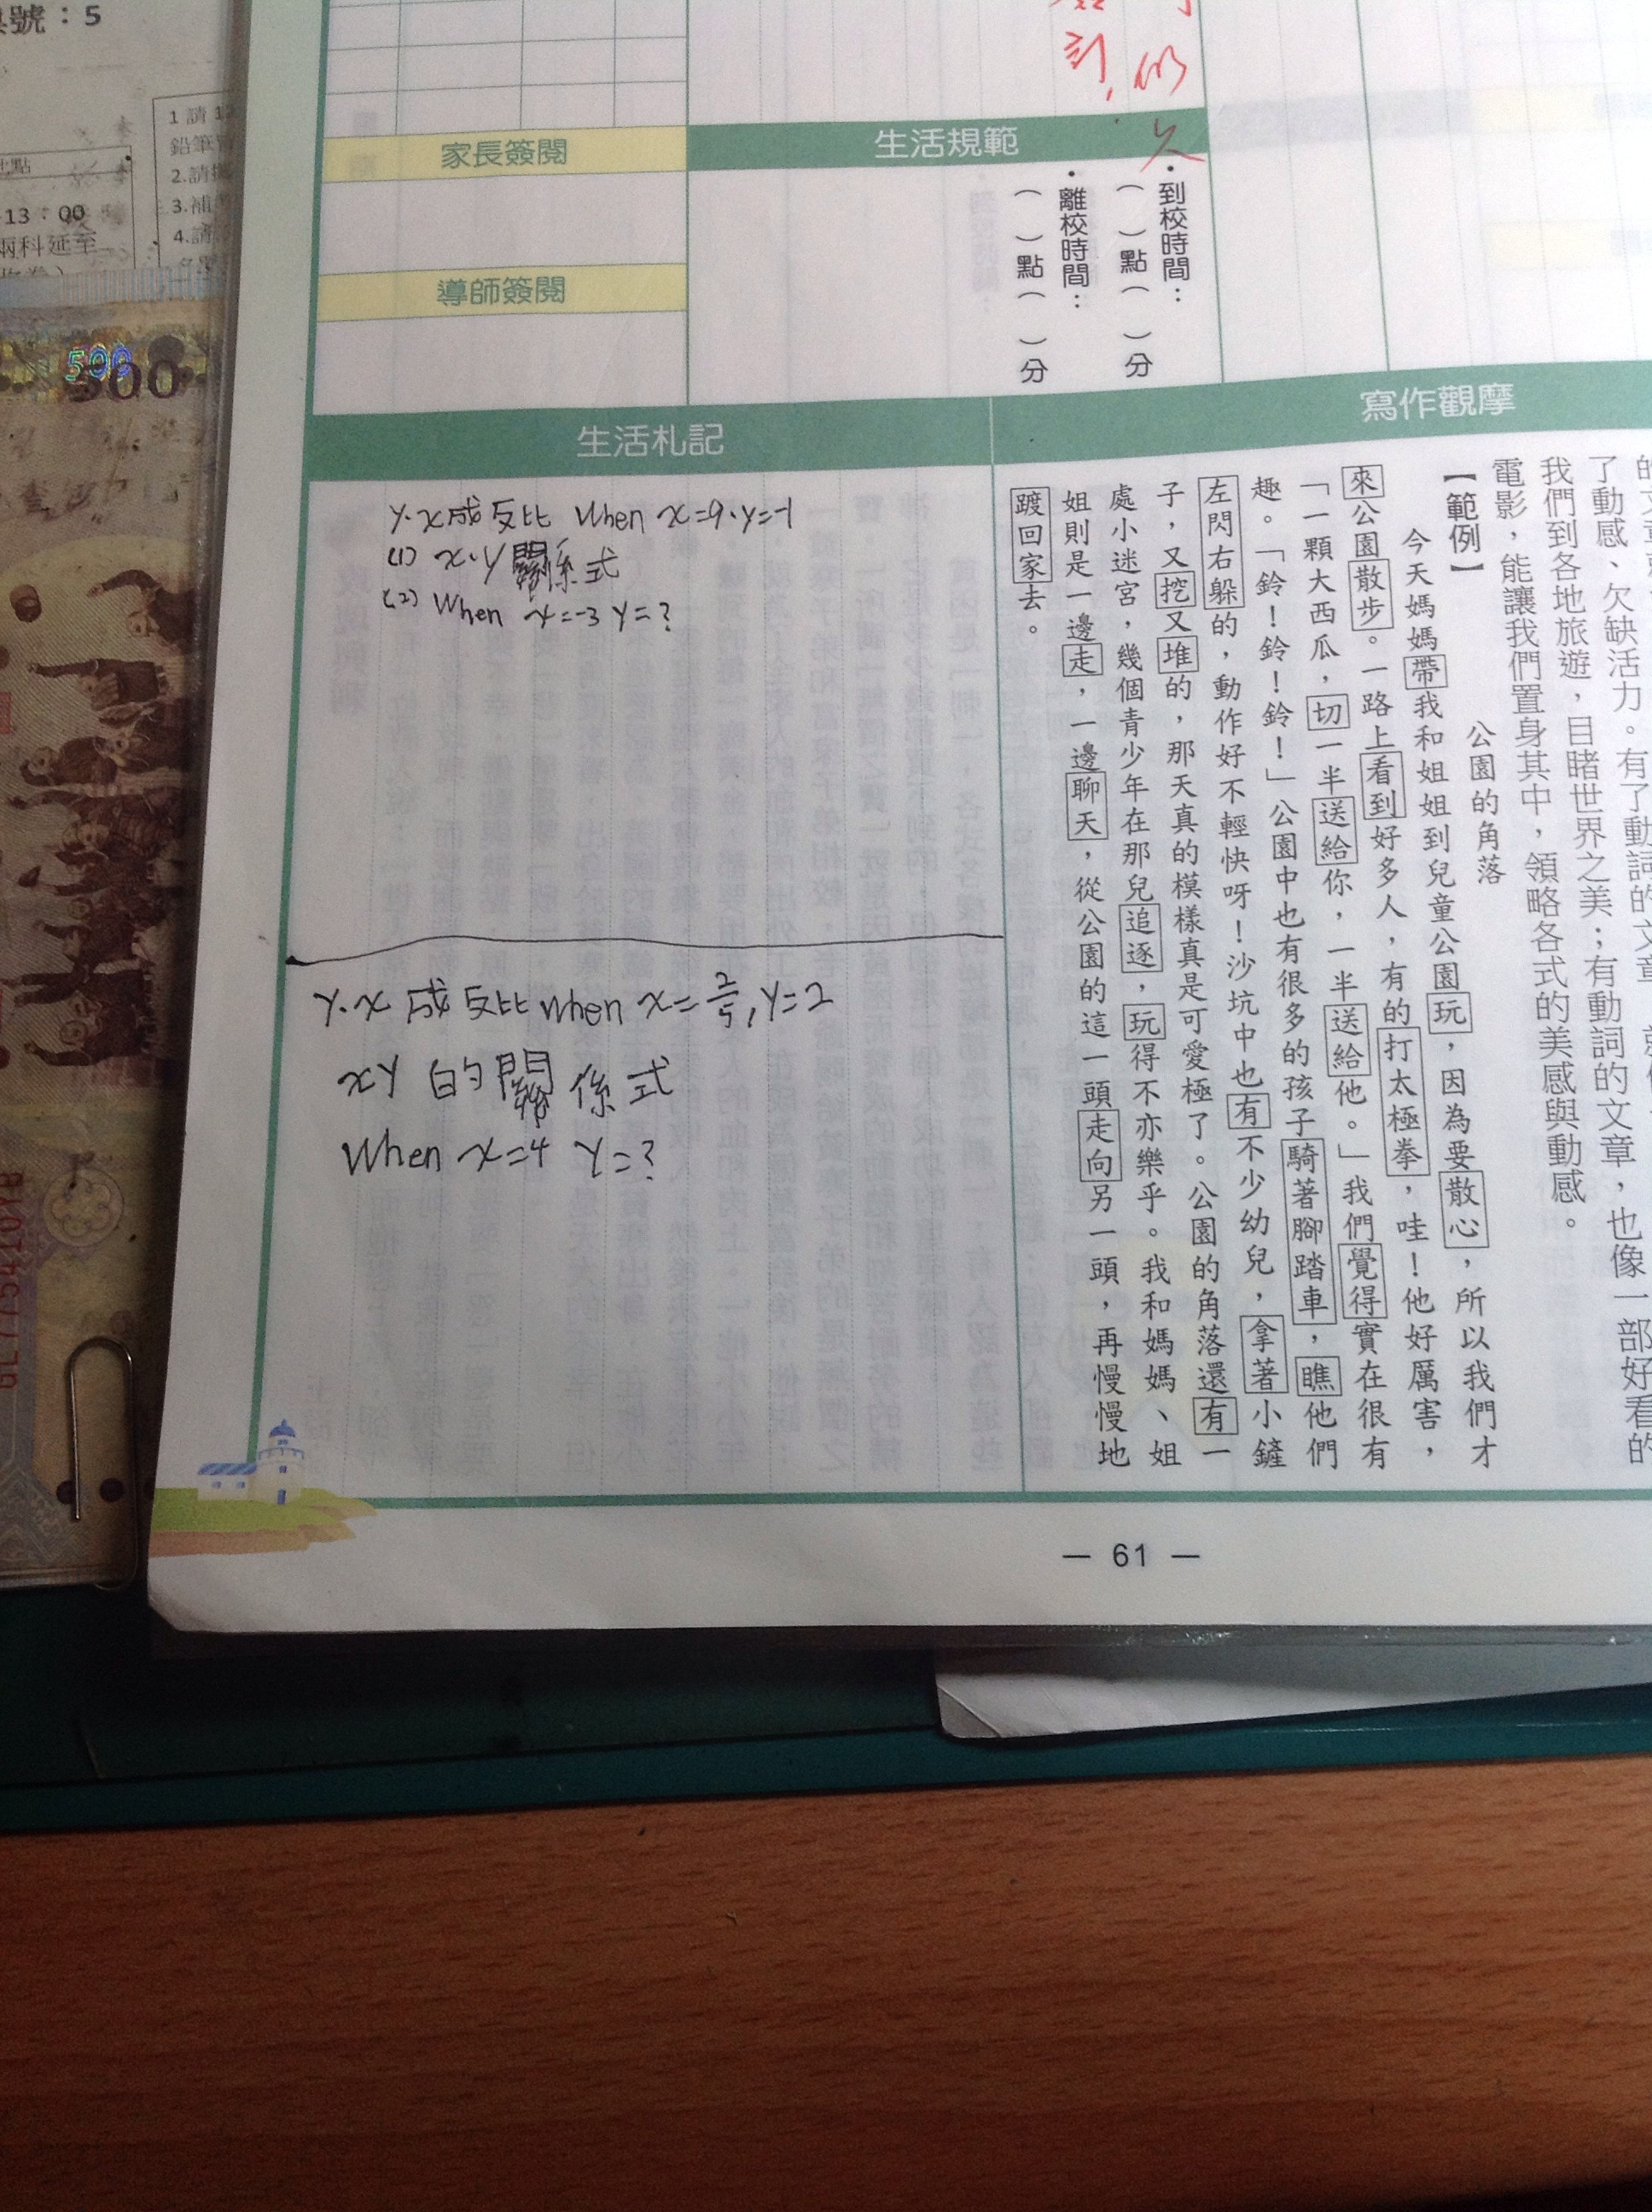 號：5
1 請
鉛筆
2.請
3.補
4.請
地點
-13：00
兩科延至
500
500
GL777541QYB
家長簽閱
導師簽閱
生活規範
・到校時間：
（ ）點（ ）分
・離校時間：
（ ）點（ ）分
寫作觀摩
了動感、欠缺活力。有了動詞的文章，就像
我們到各地旅遊，目睹世界之美；有動詞的文章，也像一部好看的
電影，能讓我們置身其中，領略各式的美感與動感。
【範例】
公園的角落
今天媽媽帶我和姐姐到兒童公園玩，因為要散心，所以我們才
來公園散步。一路上看到好多人，有的打太極拳，哇！他好厲害，
「一顆大西瓜，切一半送給你，一半送給他。」我們覺得實在很有
趣。「鈴！鈴！鈴！」公園中也有很多的孩子騎著腳踏車，瞧他們
左閃右躲的，動作好不輕快呀！沙坑中也有不少幼兒，拿著小鏟
子，又挖又堆的，那天真的模樣真是可愛極了。公園的角落還有一
處小迷宮，幾個青少年在那兒追逐，玩得不亦樂乎。我和媽媽、姐
姐則是一邊走，一邊聊天，從公園的這一頭走向另一頭，再慢慢地
踱回家去。
生活札記
y．x成反比 When x=9．y=-1
(1) x．y關係式
(2) When x=-3 y=?
y．x 成反比 When x=2/5, y=2
xy 的關係式
When x=4 y=?
— 61 —